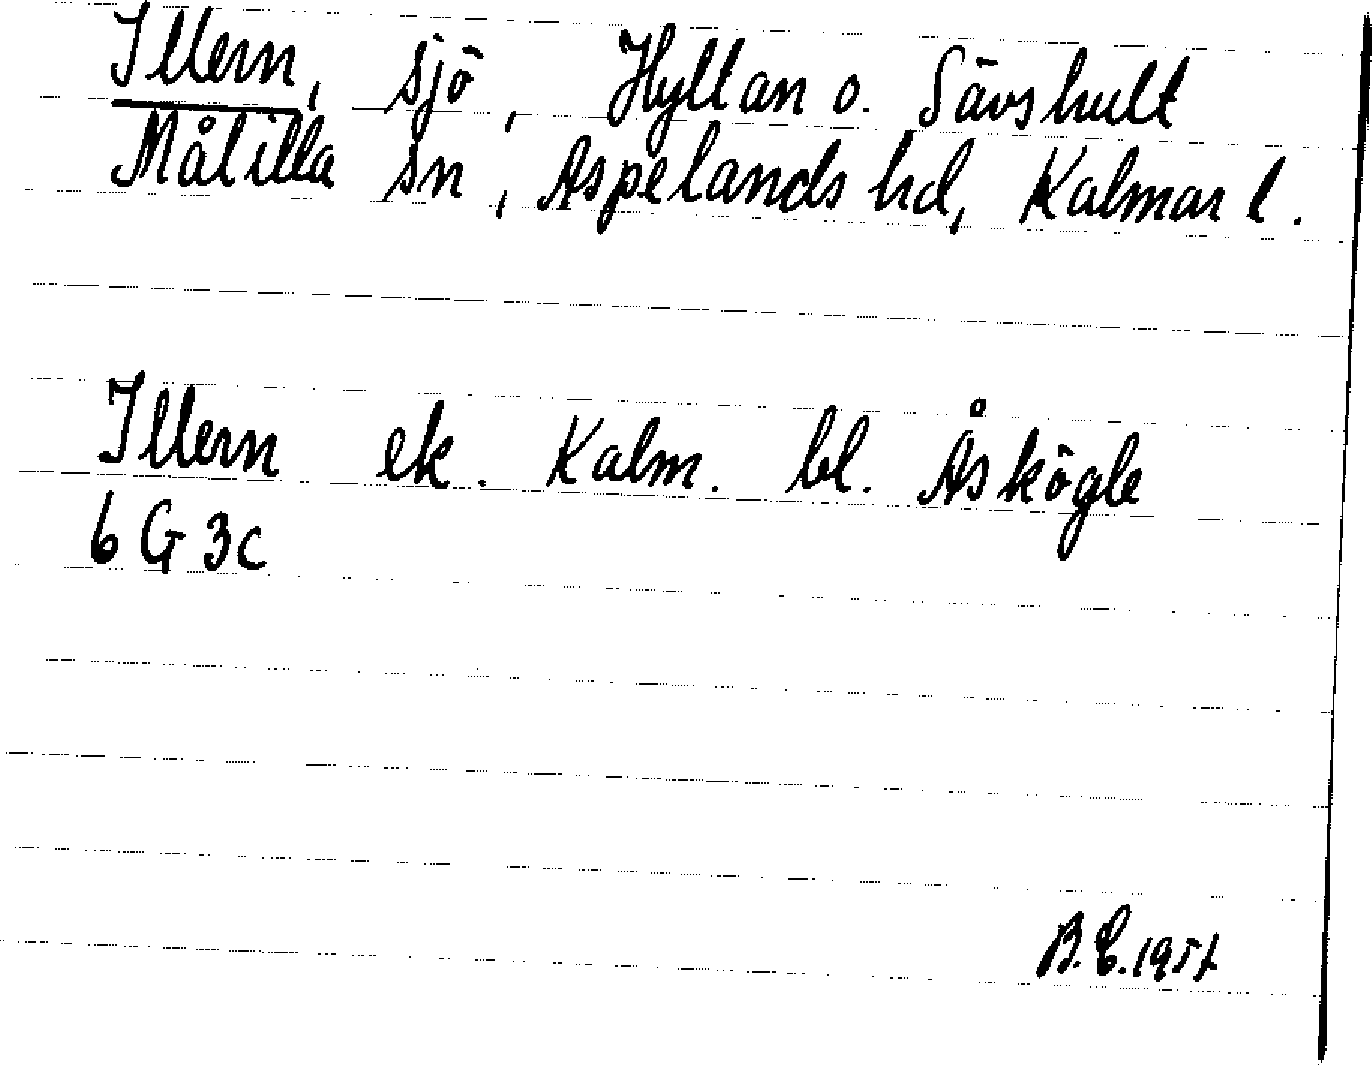 Illern, sjö, Hyltan o. Sävshult
Målilla sn, Aspelands hd, Kalmar l.
Illern ek. Kalm. bl. Åskögle
6 G 3c
B.E. 1957